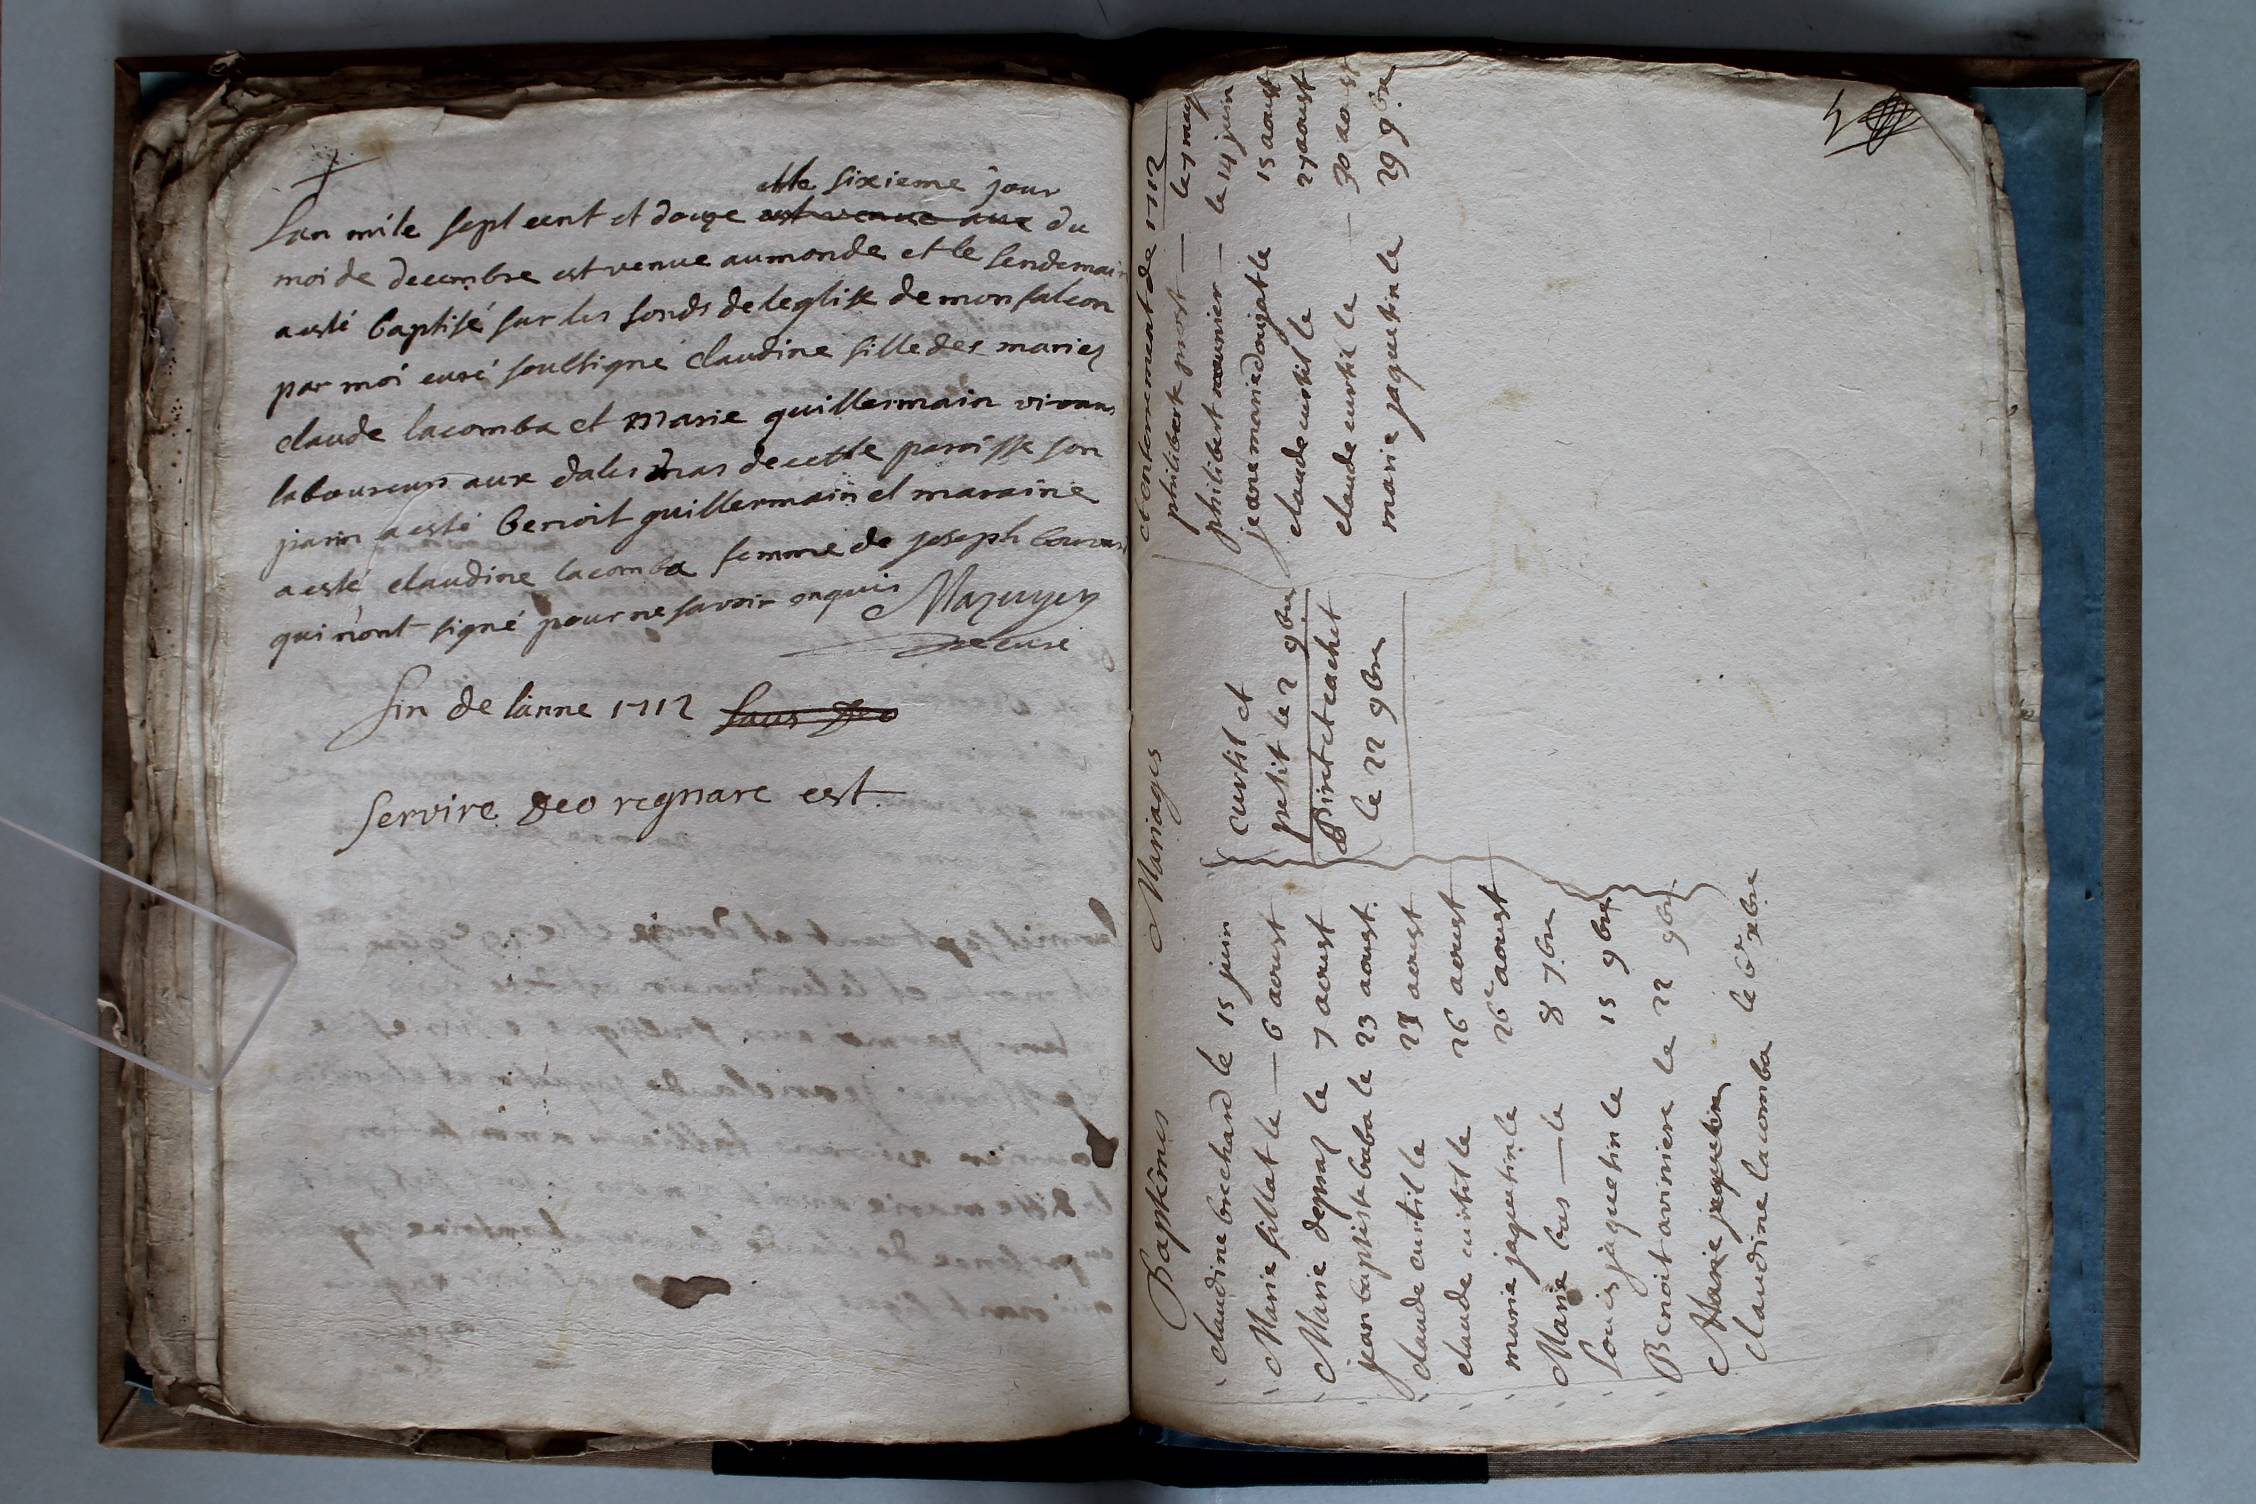 etle sixieme jour
Lan mile sept cent et douze est venue aux du
moi de decembre est venue au monde et le lendemain
a esté baptisé sur les fonds de leglise de monfalcon
par moi curé soubsigné claudine fille des mariez
claude lacomba et Marie guillermain vivans
laboureurs aux dales mas de cette paroisse son
parin a esté benoit guillermain et maraine
a esté claudine lacomba femme de joseph
qui n'ont signé pour ne savoir enquis Mazuyer
curé
fin de lanne 1712 Laus Deo
Servire Deo regnare est
Baptêmes
claudine brechard le 15 juin
Marie fillat le — 6 aoust
Marie depras le 7 aoust
jean baptiste baba le 23 aoust
claude curtil le 23 aoust
claude curtil le 26 aoust
marie jaquetin le 26e aoust
Marie bas — le 8 7bre
Louis jaquetin le 15 9bre
Benoit aviniere le 22 9bre
Marie jaquetin
claudine lacomba le 6e xbre
Mariages
curtil et
petit le 2 9bre
Pint et cachet
le 22 9bre
et enterrement de 1712
philiberte prost — le 7 may
philibert meunier — le 14 juin
jeane marie douzat le 15 aoust
claude curtil le 27 aoust
claude curtil le — 30 aoust
marie jaquetin le 29 9bre